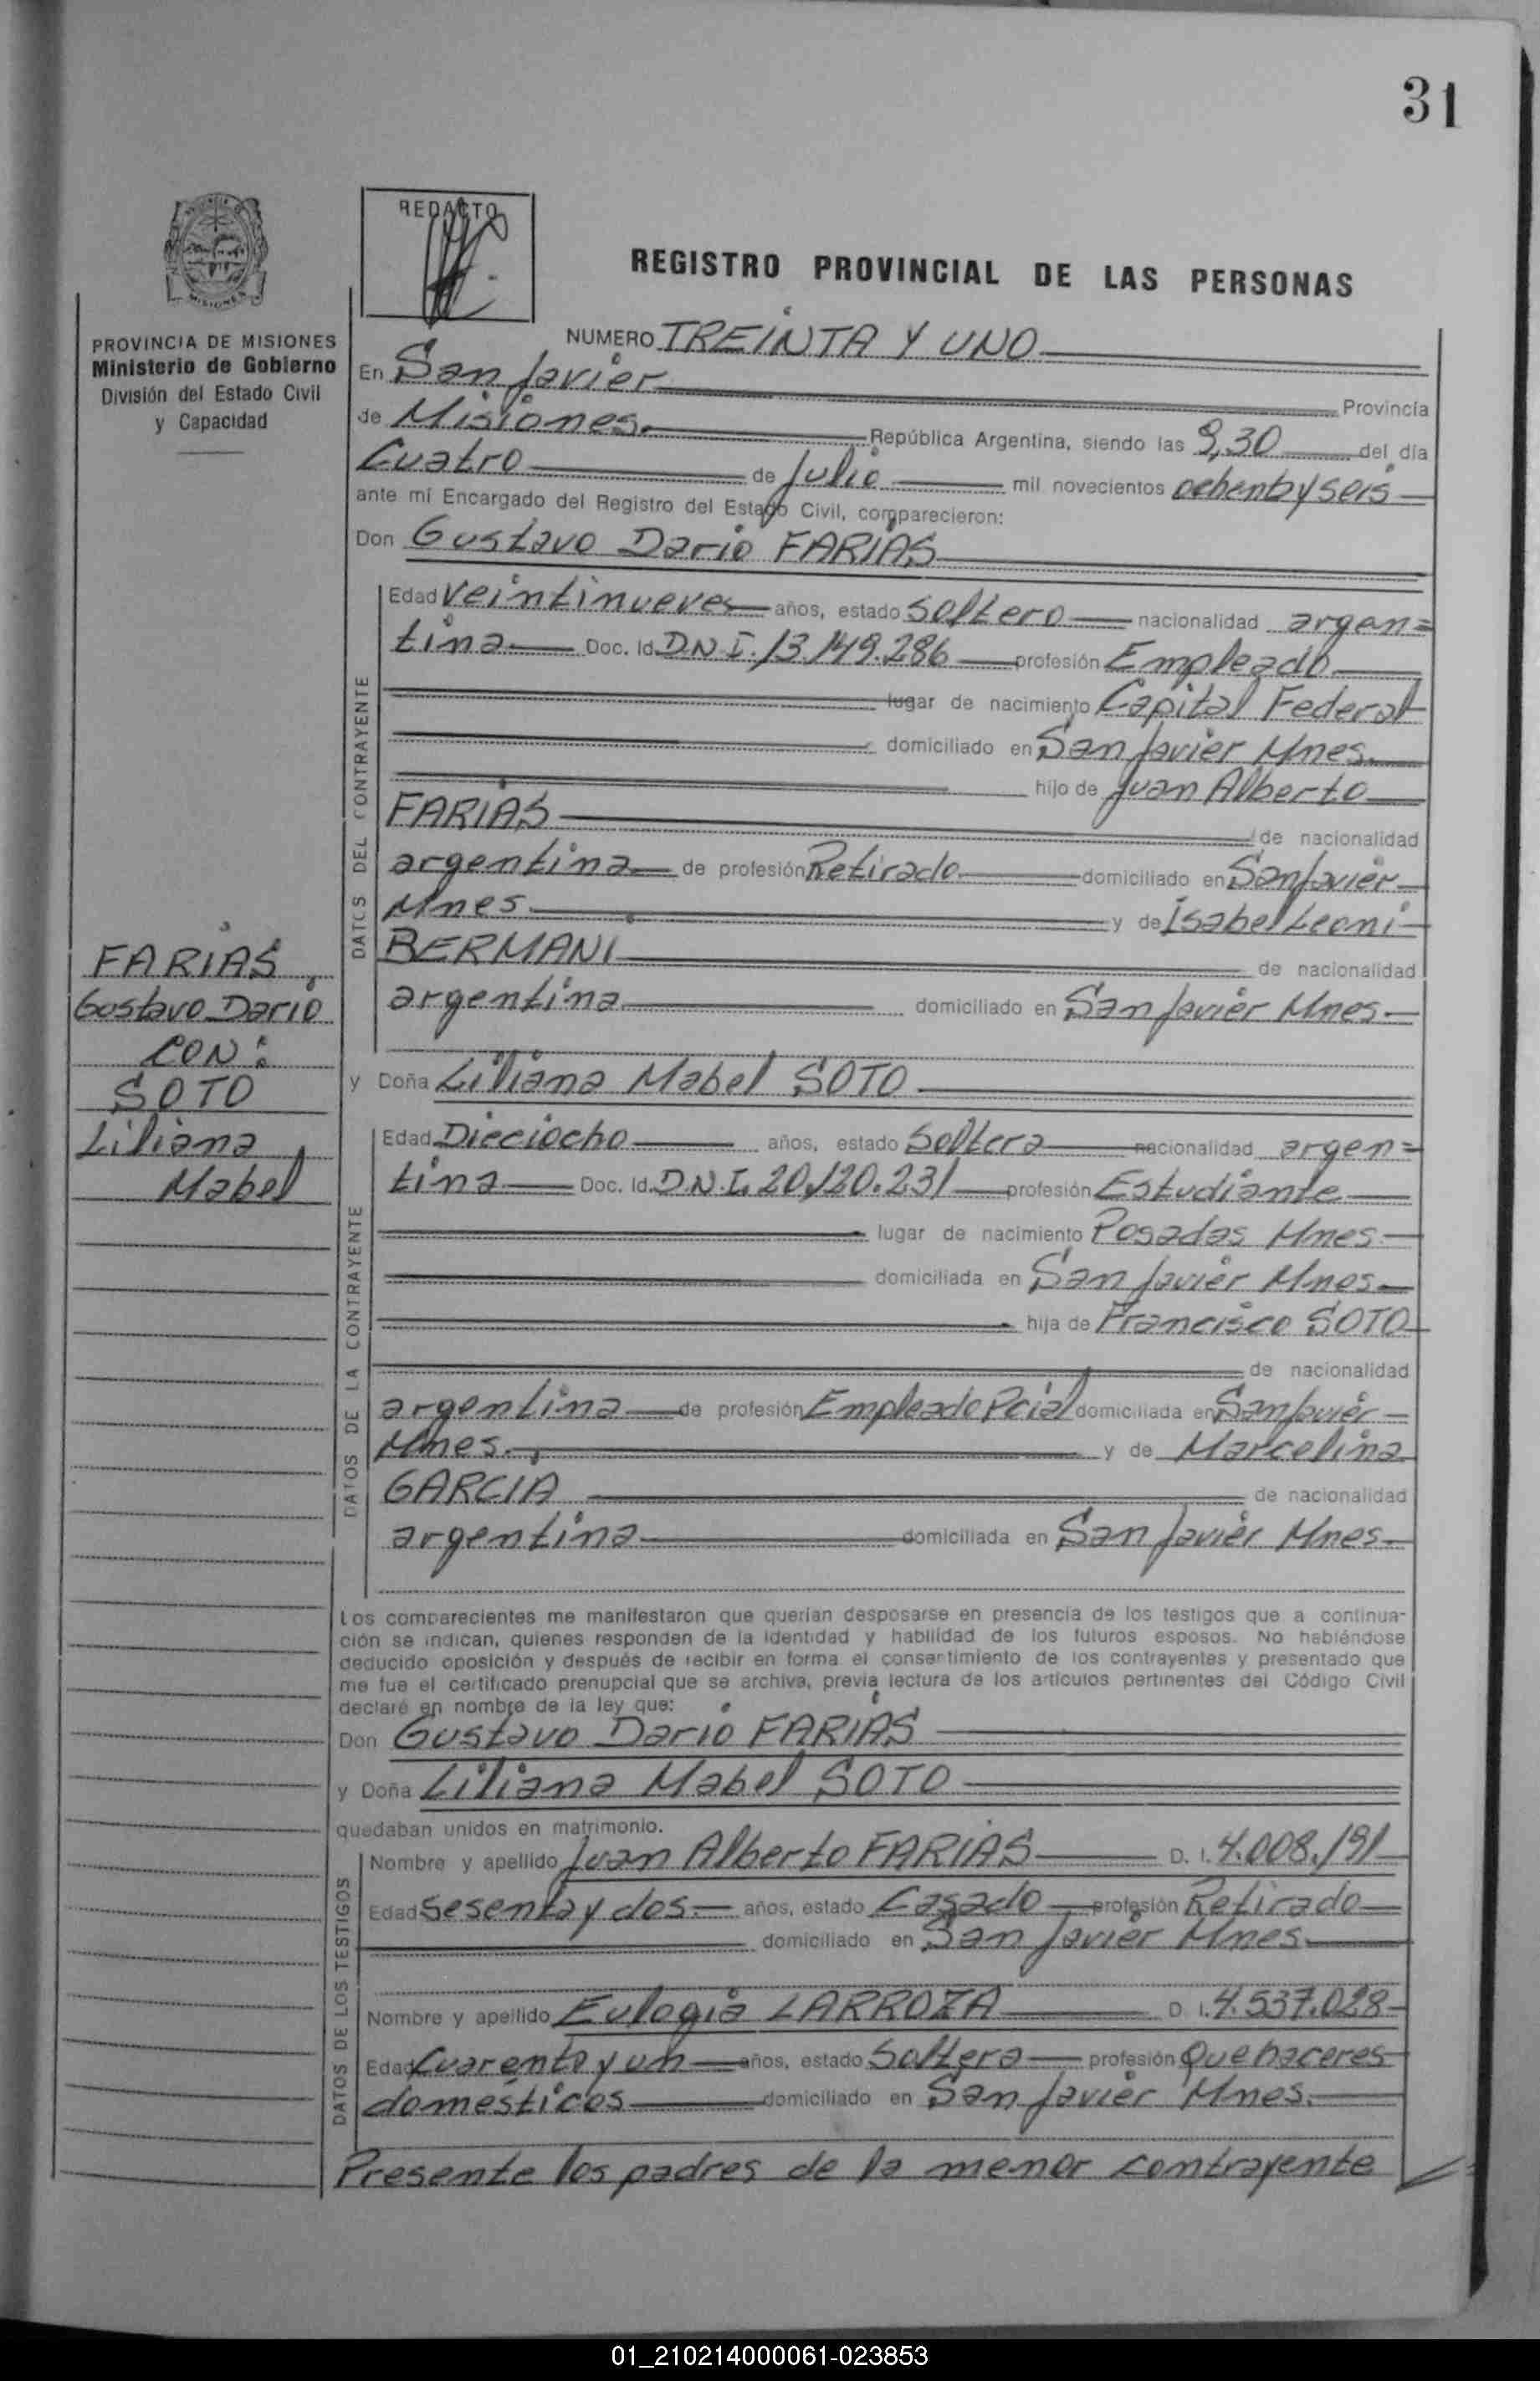 31
REDACTO
REGISTRO PROVINCIAL DE LAS PERSONAS
MISIONES
PROVINCIA DE MISIONES
Ministerio de Gobierno
División del Estado Civil
y Capacidad
FARIAS,
Gustavo Dario
CON:
SOTO
Liliana
Mabel
NUMERO TREINTA Y UNO
En San Javier Provincia
de Misiones. República Argentina, siendo las 9,30 del día
Cuatro de Julio mil novecientos ochenta y seis
ante mí Encargado del Registro del Estado Civil, comparecieron:
Don Gustavo Dario FARIAS
DATOS DEL CONTRAYENTE
Edad veintinueve años, estado soltero nacionalidad argen=
tina Doc. Id. D.N.I. 13.149.286 profesión Empleado
lugar de nacimiento Capital Federal
domiciliado en San Javier Mnes.
hijo de Juan Alberto
FARIAS de nacionalidad
argentina de profesión Retirado domiciliado en San Javier
Mnes. y de Isabel Leoni
BERMANI de nacionalidad
argentina domiciliado en San Javier Mnes.
y Doña Liliana Mabel SOTO
DATOS DE LA CONTRAYENTE
Edad Dieciocho años, estado Soltera nacionalidad argen=
tina Doc. Id. D.N.I. 20.120.231 profesión Estudiante
lugar de nacimiento Posadas Mnes.
domiciliada en San Javier Mnes.
hija de Francisco SOTO
de nacionalidad
argentina de profesión Empleado Pcial domiciliada en San Javier
Mnes. y de Marcelina
GARCIA de nacionalidad
argentina domiciliada en San Javier Mnes.
Los comparecientes me manifestaron que querían desposarse en presencia de los testigos que a continua-
ción se indican, quienes responden de la identidad y habilidad de los futuros esposos. No habiéndose
deducido oposición y después de recibir en forma el consentimiento de los contrayentes y presentado que
me fue el certificado prenupcial que se archiva, previa lectura de los artículos pertinentes del Código Civil
declaré en nombre de la ley que:
Don Gustavo Dario FARIAS
y Doña Liliana Mabel SOTO
quedaban unidos en matrimonio.
DATOS DE LOS TESTIGOS
Nombre y apellido Juan Alberto FARIAS D. I. 4.008.191
Edad Sesenta y dos. años, estado Casado profesión Retirado
domiciliado en San Javier Mnes.
Nombre y apellido Eulogia LARROZA D. I. 4.537.028
Edad Cuarenta y un años, estado Soltera profesión Quehaceres
domesticos domiciliado en San Javier Mnes.
Presente los padres de la menor contrayente
01_210214000061-023853